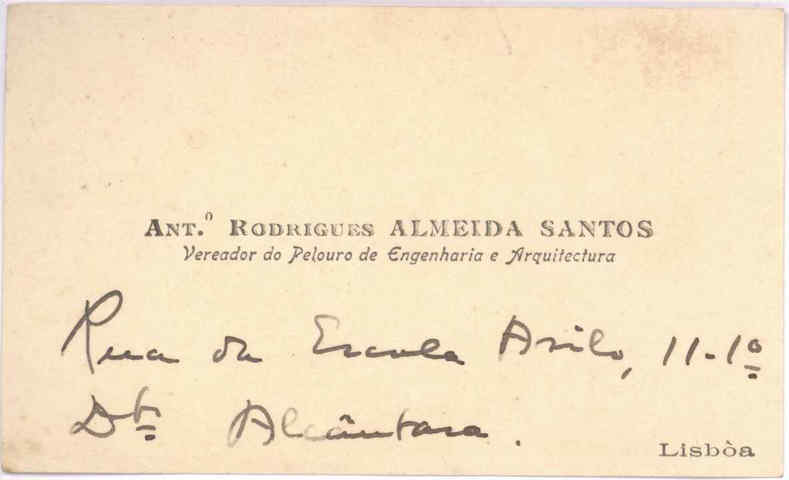 ANT.º RODRIGUES ALMEIDA SANTOS
Vereador do Pelouro de Engenharia e Arquitectura
Rua da Escola Asilo, 11-1º
Dtº Alcântara.
Lisbòa